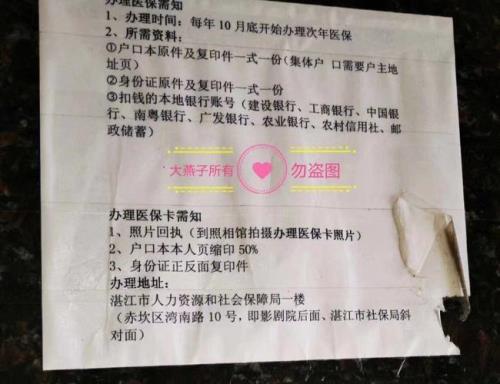 办理医保需知
1、办理时间：每年10月底开始办理次年医保
2、所需资料：
①户口本原件及复印件一式一份(集体户 口需要户主地
址页)
②身份证原件及复印件一式一份
③扣钱的本地银行账号（建设银行、工商银行、中国银
行、南粤银行、广发银行、农业银行、农村信用社、邮
政储蓄）
大燕子所有 勿盗图
办理医保卡需知
1、照片回执（到照相馆拍摄办理医保卡照片）
2、户口本本人页缩印50%
3、身份证正反面复印件
办理地址：
湛江市人力资源和社会保障局一楼
（赤坎区湾南路10号，即影剧院后面、湛江市社保局斜
对面）